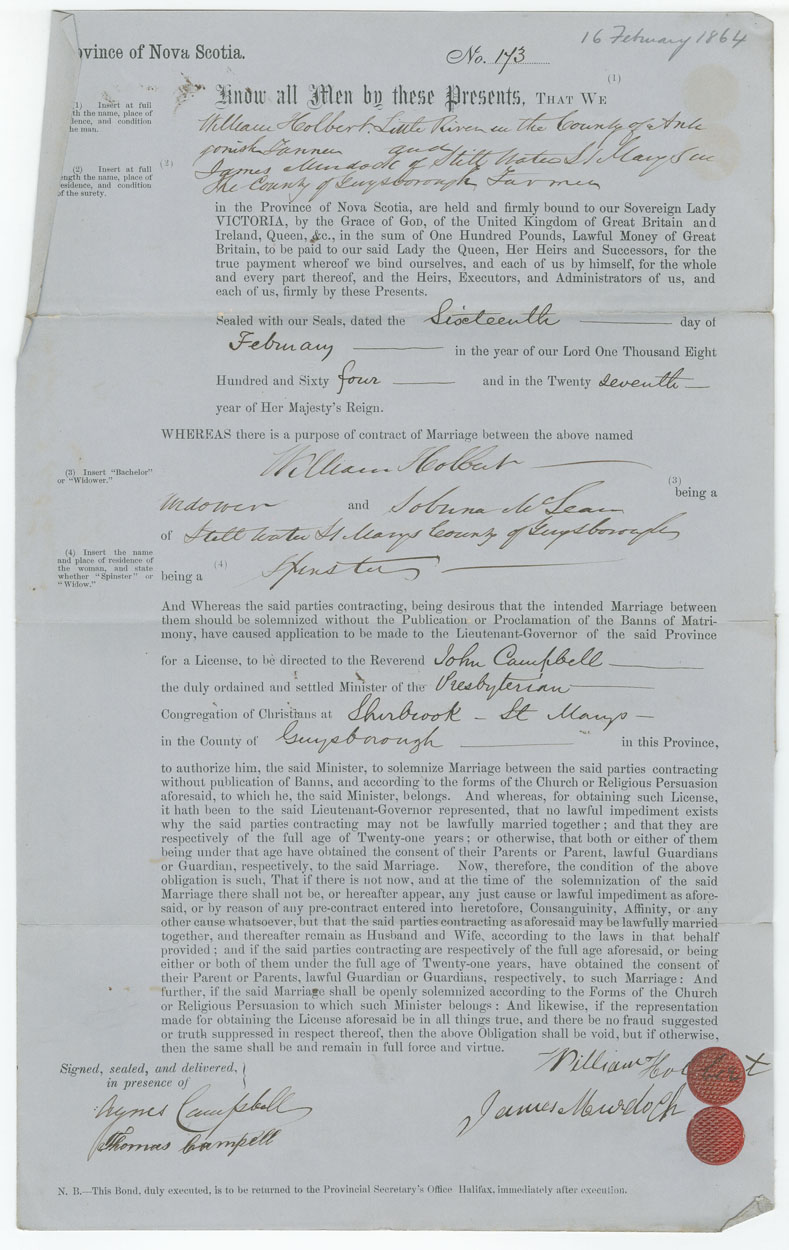 16 February 1864
ovince of Nova Scotia.
No. 173
(1)
Know all Men by these Presents, THAT WE
1) Insert at full
th the name, place of
dence, and condition
he man.
William Holbert Little River in the County of Anti
gonish Tanner and
(2) Insert at full
ength the name, place of
esidence, and condition
of the surety.
(2)
James Murdock of Still Water St Marys in
The County of Guysborough Farmer
in the Province of Nova Scotia, are held and firmly bound to our Sovereign Lady
VICTORIA, by the Grace of GOD, of the United Kingdom of Great Britain and
Ireland, Queen, &c., in the sum of One Hundred Pounds, Lawful Money of Great
Britain, to be paid to our said Lady the Queen, Her Heirs and Successors, for the
true payment whereof we bind ourselves, and each of us by himself, for the whole
and every part thereof, and the Heirs, Executors, and Administrators of us, and
each of us, firmly by these Presents.
Sealed with our Seals, dated the Sixteenth day of
February in the year of our Lord One Thousand Eight
Hundred and Sixty four and in the Twenty seventh
year of Her Majesty's Reign.
WHEREAS there is a purpose of contract of Marriage between the above named
William Holbert
(3) Insert "Bachelor"
or "Widower."
(3)
being a
Widower and Sobrina McLean
of Still Water St Marys County of Guysborough
(4) Insert the name
and place of residence of
the woman, and state
whether "Spinster" or
"Widow."
(4)
being a Spinster
And Whereas the said parties contracting, being desirous that the intended Marriage between
them should be solemnized without the Publication or Proclamation of the Banns of Matri-
mony, have caused application to be made to the Lieutenant-Governor of the said Province
for a License, to be directed to the Reverend John Campbell
the duly ordained and settled Minister of the Presbyterian
Congregation of Christians at Sherbrook - St Marys
in the County of Guysborough in this Province,
to authorize him, the said Minister, to solemnize Marriage between the said parties contracting
without publication of Banns, and according to the forms of the Church or Religious Persuasion
aforesaid, to which he, the said Minister, belongs. And whereas, for obtaining such License,
it hath been to the said Lieutenant-Governor represented, that no lawful impediment exists
why the said parties contracting may not be lawfully married together; and that they are
respectively of the full age of Twenty-one years; or otherwise, that both or either of them
being under that age have obtained the consent of their Parents or Parent, lawful Guardians
or Guardian, respectively, to the said Marriage. Now, therefore, the condition of the above
obligation is such, That if there is not now, and at the time of the solemnization of the said
Marriage there shall not be, or hereafter appear, any just cause or lawful impediment as afore-
said, or by reason of any pre-contract entered into heretofore, Consanguinity, Affinity, or any
other cause whatsoever, but that the said parties contracting as aforesaid may be lawfully married
together, and thereafter remain as Husband and Wife, according to the laws in that behalf
provided; and if the said parties contracting are respectively of the full age aforesaid, or being
either or both of them under the full age of Twenty-one years, have obtained the consent of
their Parent or Parents, lawful Guardian or Guardians, respectively, to such Marriage: And
further, if the said Marriage shall be openly solemnized according to the Forms of the Church
or Religious Persuasion to which such Minister belongs: And likewise, if the representation
made for obtaining the License aforesaid be in all things true, and there be no fraud suggested
or truth suppressed in respect thereof, then the above Obligation shall be void, but if otherwise,
then the same shall be and remain in full force and virtue.
Signed, sealed, and delivered,
in presence of
William Holbert
Agnes Campbell
James Murdoch
Thomas Campell
N. B.—This Bond, duly executed, is to be returned to the Provincial Secretary's Office Halifax, immediately after execution.